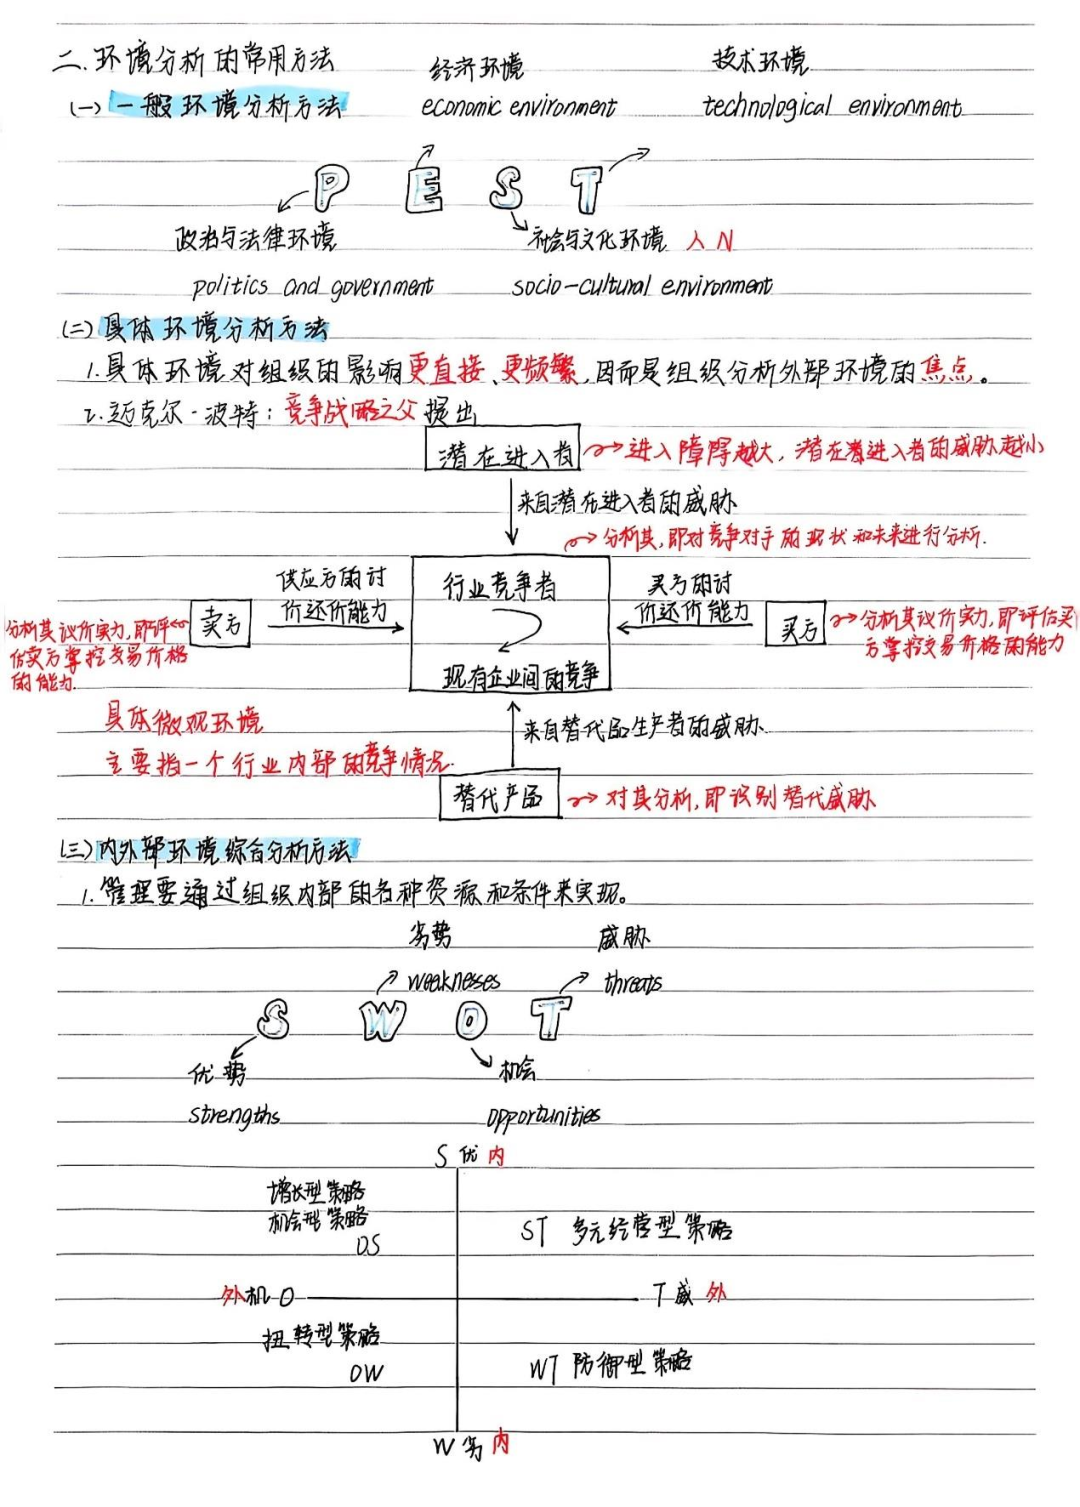 二.环境分析的常用方法
经济环境
技术环境
(一)一般环境分析方法
economic environment
technological environment
P E S T
政治与法律环境
社会与文化环境 人N
politics and government
socio-cultural environment
(二)具体环境分析方法
1.具体环境对组织的影响更直接、更频繁,因而是组织分析外部环境的焦点。
2.迈克尔·波特:竞争战略之父提出
潜在进入者
进入障碍越大,潜在进入者的威胁越小
来自潜在进入者的威胁
分析其,即对竞争对手的现状和未来进行分析.
供应方的讨
价还价能力
行业竞争者
现有企业间的竞争
买方的讨
价还价能力
卖方
分析其议价实力,即评
估卖方掌控交易价格
的能力.
买方
分析其议价实力,即评估买
方掌控交易价格的能力
具体微观环境
主要指一个行业内部的竞争情况.
来自替代品生产者的威胁.
替代产品
对其分析,即识别替代威胁
(三)内外部环境综合分析方法
1.管理要通过组织内部的各种资源和条件来实现。
劣势
威胁
weaknesses
threats
S W O T
优势
机会
strengths
opportunities
S 优 内
增长型策略
机会型策略
OS
ST 多元经营型策略
外机O
T威 外
扭转型策略
OW
WT 防御型策略
W劣 内